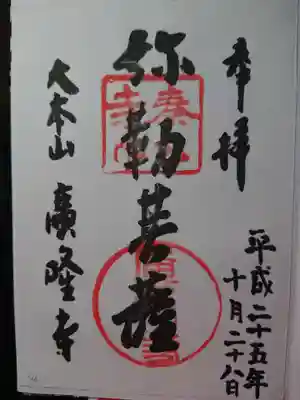 奉拝
平成二十五年
十月二十八日
弥勒菩薩
大本山 廣隆寺